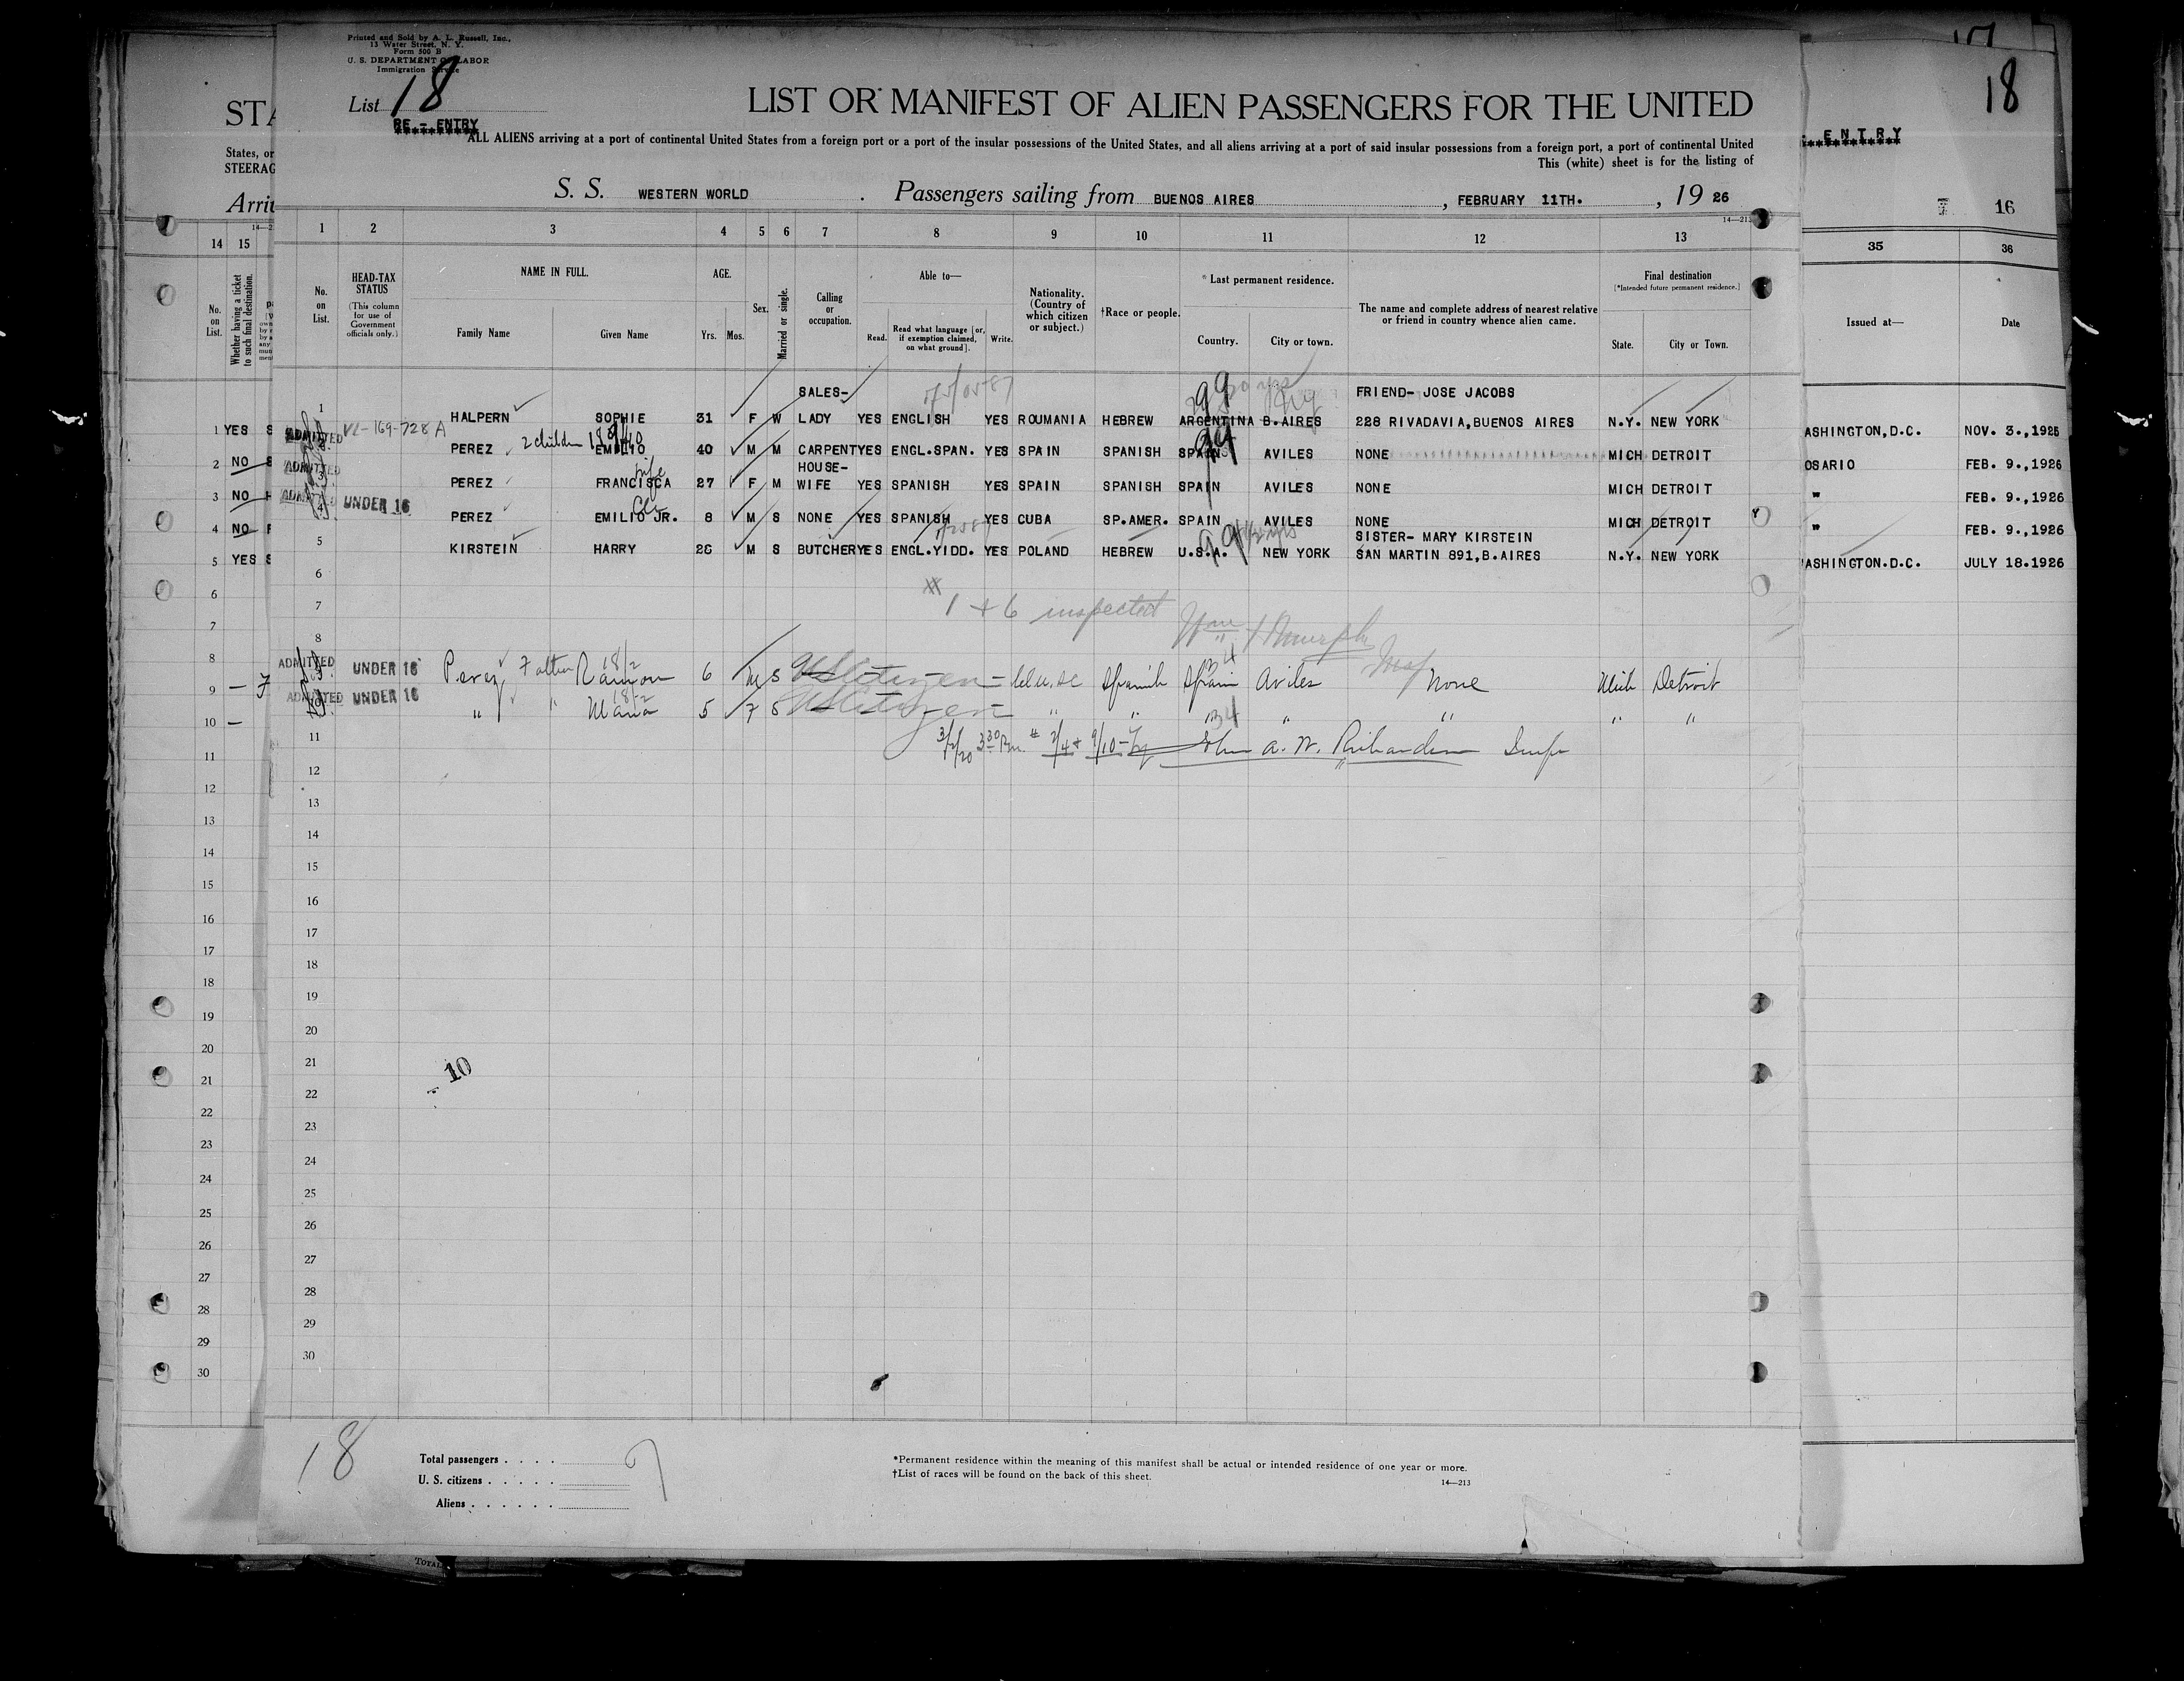 Printed and Sold by A. L. Russell, Inc.,
13 Water Street, N. Y.
Form 500 B
U. S. DEPARTMENT OF LABOR
Immigration Service
List 18
RE - ENTRY
LIST OR MANIFEST OF ALIEN PASSENGERS FOR THE UNITED
ALL ALIENS arriving at a port of continental United States from a foreign port or a port of the insular possessions of the United States, and all aliens arriving at a port of said insular possessions from a foreign port, a port of continental United
This (white) sheet is for the listing of
S. S. WESTERN WORLD . Passengers sailing from BUENOS AIRES , FEBRUARY 11TH. , 19 26
14—213
1 2 3 4 5 6 7 8 9 10 11 12 13
No. on List.
HEAD-TAX STATUS (This column for use of Government officials only.)
NAME IN FULL.
Family Name Given Name
AGE.
Yrs. Mos.
Sex.
Married or single.
Calling or occupation.
Able to—
Read. Read what language [or, if exemption claimed, on what ground]. Write.
Nationality. (Country of which citizen or subject.)
†Race or people.
*Last permanent residence.
Country. City or town.
The name and complete address of nearest relative or friend in country whence alien came.
Final destination
[*Intended future permanent residence.]
State. City or Town.
1 HALPERN SOPHIE 31 F W SALES-LADY YES ENGLISH YES ROUMANIA HEBREW ARGENTINA B.AIRES FRIEND- JOSE JACOBS
228 RIVADAVIA,BUENOS AIRES N.Y. NEW YORK
ADMITTED PEREZ 2 children EMILIO 40 M M CARPENT YES ENGL.SPAN. YES SPAIN SPANISH SPAIN AVILES NONE MICH DETROIT
ADMITTED PEREZ FRANCISCA wife 27 F M HOUSE-WIFE YES SPANISH YES SPAIN SPANISH SPAIN AVILES NONE MICH DETROIT
UNDER 16 PEREZ EMILIO JR. 8 M S NONE YES SPANISH YES CUBA SP.AMER. SPAIN AVILES NONE MICH DETROIT
5 KIRSTEIN HARRY 26 M S BUTCHER YES ENGL.YIDD. YES POLAND HEBREW U.S.A. NEW YORK SISTER- MARY KIRSTEIN
SAN MARTIN 891,B.AIRES N.Y. NEW YORK
6
7
1 + 6 inspected
8
ADMITTED UNDER 16 Perez Father Ramon 6 M S US Citizen Spanish Spain Aviles None Mich Detroit
ADMITTED UNDER 16 " " Maria 5 F S US Citizen " " " " " " "
11
12
13
14
15
16
17
18
19
20
21
22
23
24
25
26
27
28
29
30
10
18
Total passengers . . . .
U. S. citizens . . . . .
Aliens . . . . . .
*Permanent residence within the meaning of this manifest shall be actual or intended residence of one year or more.
†List of races will be found on the back of this sheet.
14—213
STA
States, or
STEERAG
Arri
14 15
No. on List.
Whether having a ticket to such final destination.
1 YES S
2 NO
3 NO
4 NO
5 YES S
6
7
8
9
10
11
12
13
14
15
16
17
18
19
20
21
22
23
24
25
26
27
28
29
30
18
ENTRY
16
35 36
Issued at— Date
ASHINGTON,D.C. NOV. 3.,1925
OSARIO FEB. 9.,1926
" FEB. 9.,1926
" FEB. 9.,1926
ASHINGTON.D.C. JULY 18.1926